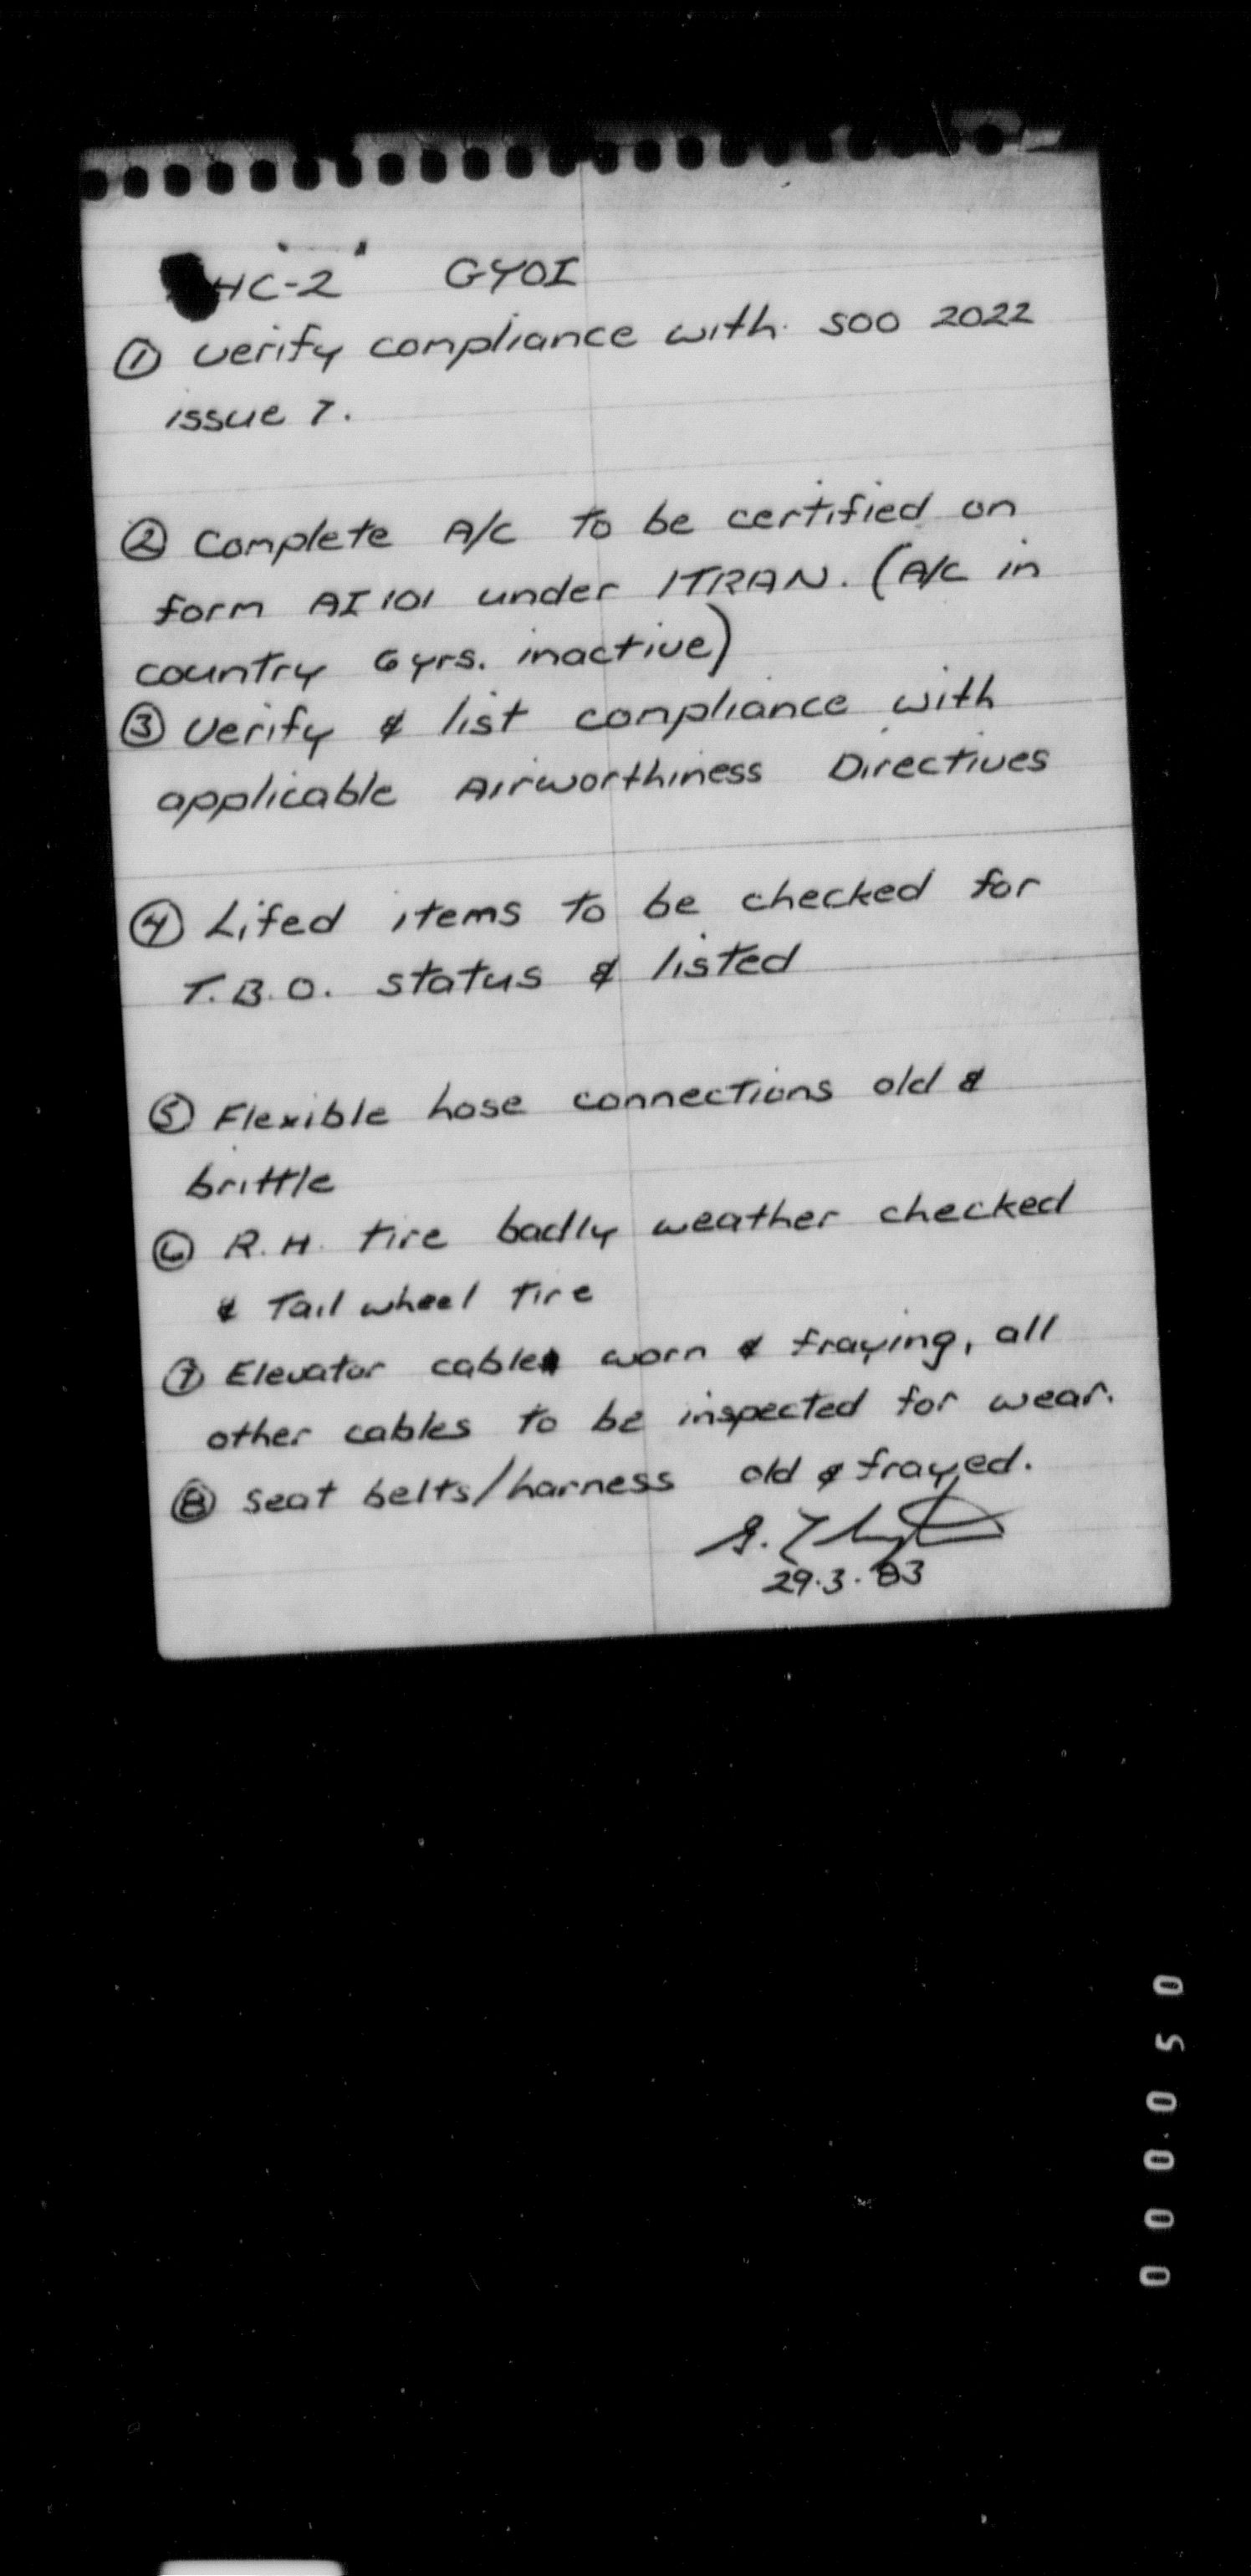 HC-2 GYOI
① Verify compliance with SOO 2022
issue 7.
② Complete A/C to be certified on
form AI 101 under ITRAN. (A/C in
country 6 yrs. inactive)
③ Verify & list compliance with
applicable Airworthiness Directives
④ Lifed items to be checked for
T.B.O. status & listed
⑤ Flexible hose connections old &
brittle
⑥ R.H. tire badly weather checked
& Tail wheel tire
⑦ Elevator cable worn & fraying, all
other cables to be inspected for wear.
⑧ Seat belts/harness old & frayed.
29.3.83
000050